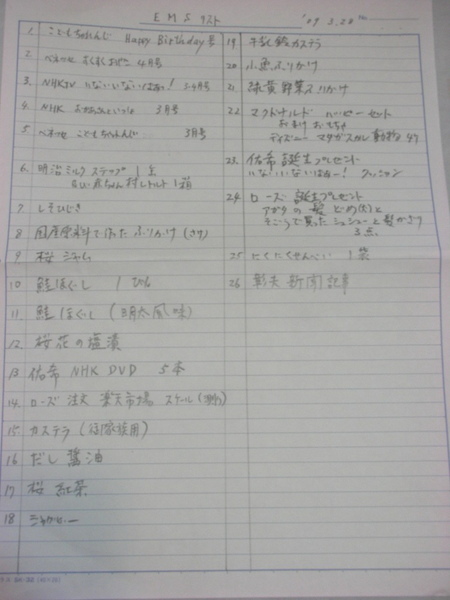 EMS リスト '09 3.28
1. こどもちゃれんじ Happy Birthday号
2. べネッセ 4月号
3. NHKTV いないいないばあっ! 3-4月号
4. NHK おかあさんといっしょ 3月号
5. べネッセ こどもちゃれんじ 3月号
6. 明治ミルク ステップ 1
レトルト 1箱
7 しそひじき
8 で作った ふりかけ
9 桜 ジャム
10 鮭ほぐし 1 びん
11 鮭ほぐし (明太風味)
12 桜花の塩漬
13 佑希 NHK DVD 5本
14 ローズ 注文 楽天市場 スケール
15 カステラ (御家族用)
16 だし醤油
17 桜 紅茶
18
19 カステラ
20 小魚ふりかけ
21 緑黄野菜ふりかけ
22 マクドナルド ハッピーセット
おまけ おもちゃ
ディズニー マダガスカル 動物 4ケ
23 佑希 誕生プレゼント
いないいないばあー! クッション
24 ローズ 誕生プレゼント
髪 どめ と
そごうで買った シュシューと髪かざり
3点
25 せんべい 1袋
26 新聞記事